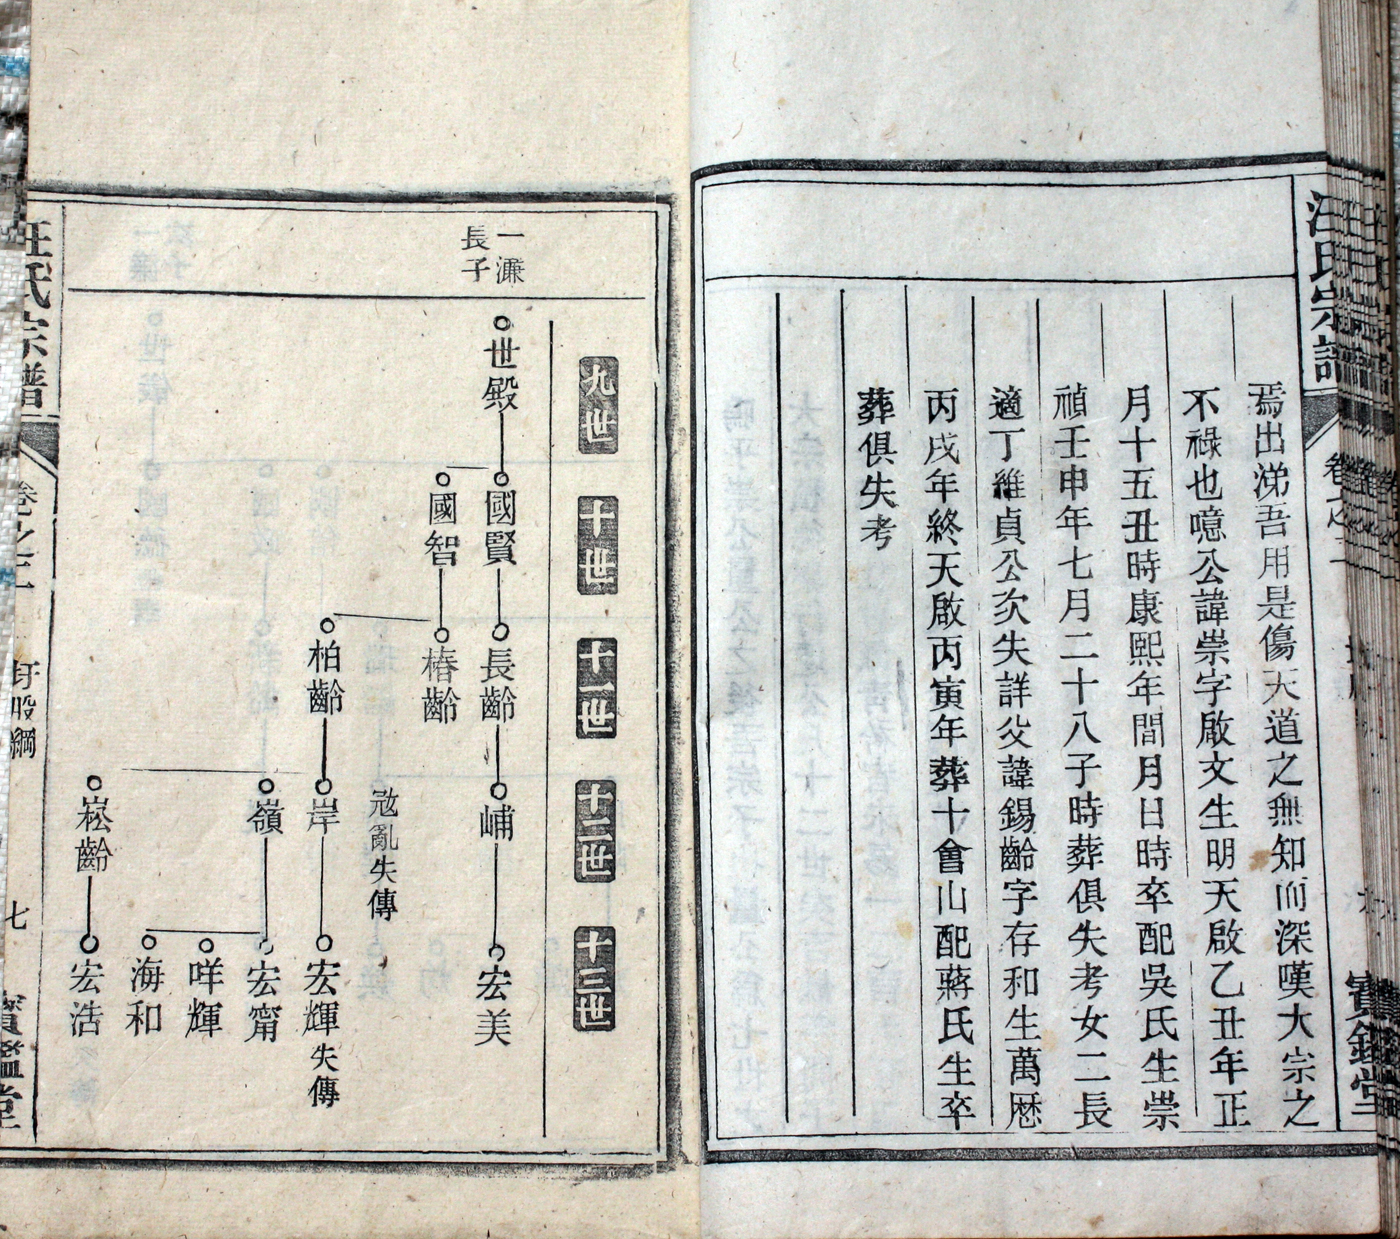 汪氏宗譜
卷之二
寶鑑堂
焉出涕吾用是傷天道之無知而深嘆大宗之
不祿也噫公諱崇字啟文生明天啟乙丑年正
月十五丑時康熙年間月日時卒配吳氏生崇
禎壬申年七月二十八子時葬俱失考女二長
適丁維貞公次失詳父諱錫齡字存和生萬曆
丙戌年終天啟丙寅年葬十會山配蔣氏生卒
葬俱失考
九世
十世
十一世
十二世
十三世
一濂
長子
世殿
國賢
長齡
峬
宏美
國智
椿齡
寇亂失傳
柏齡
岸
宏輝失傳
嶺
宏甯
咩輝
海和
崧齡
宏浩
汪氏宗譜
卷之二
圩股綱
七
寶鑑堂